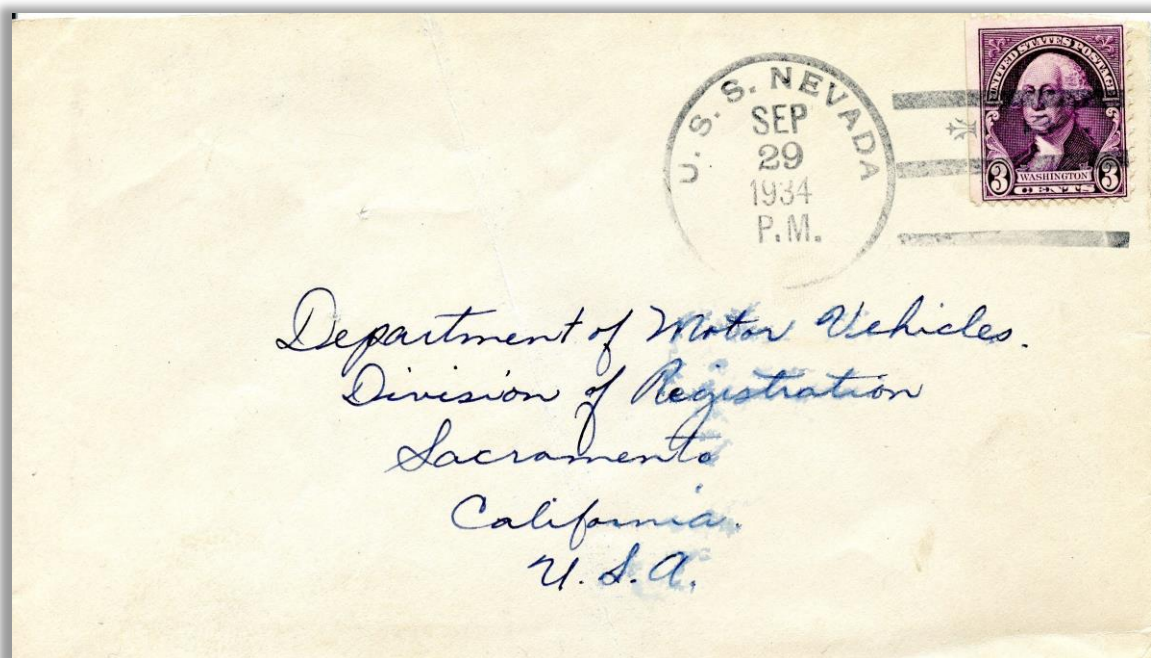 U. S. S. NEVADA
SEP
29
1934
P.M.
UNITED STATES POSTAGE
3 WASHINGTON 3
CENTS
Department of Motor Vehicles.
Division of Registration
Sacramento
California.
U. S. A.